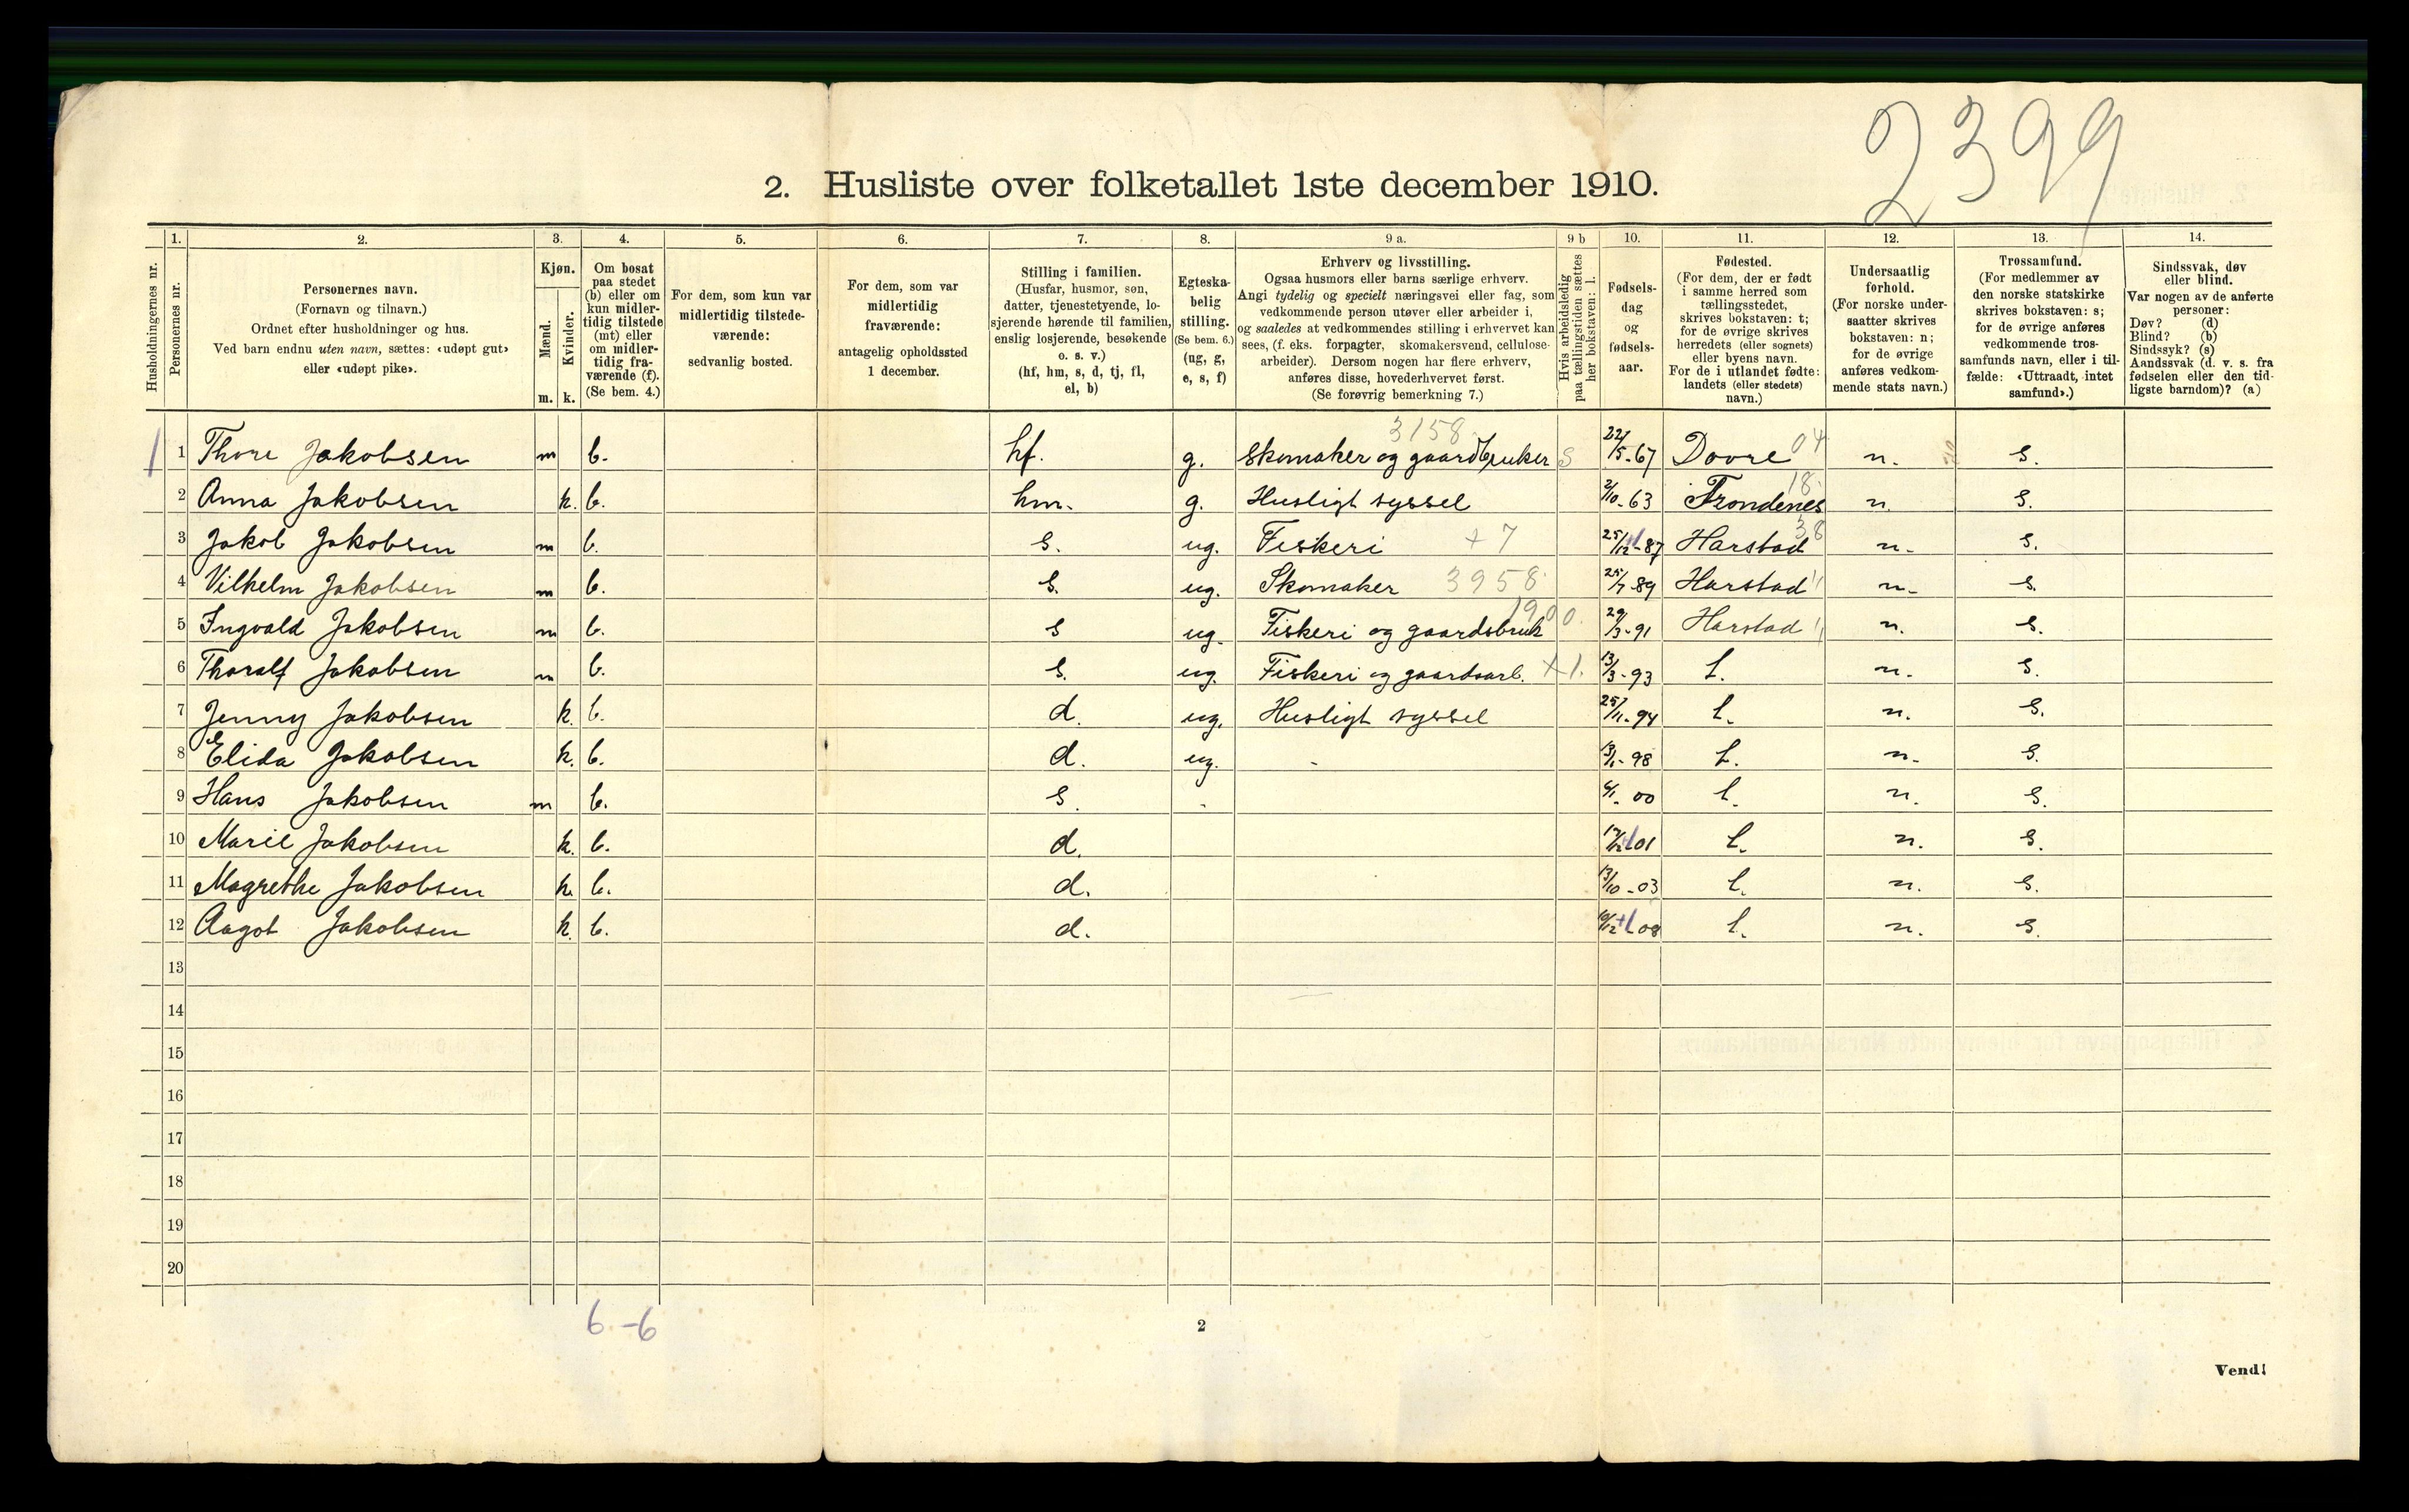 2399
2. Husliste over folketallet 1ste december 1910.
1. 2. 3. 4. 5. 6. 7. 8. 9 a. 9 b 10. 11. 12. 13. 14.
Husholdningernes nr.
Personernes nr.
Personernes navn.
(Fornavn og tilnavn.)
Ordnet efter husholdninger og hus.
Ved barn endnu uten navn, sættes: «udøpt gut»
eller «udøpt pike».
Kjøn.
Mænd.
Kvinder.
m. k.
Om bosat
paa stedet
(b) eller om
kun midler-
tidig tilstede
(mt) eller
om midler-
tidig fra-
værende (f).
(Se bem. 4.)
For dem, som kun var
midlertidig tilstede-
værende:
sedvanlig bosted.
For dem, som var
midlertidig
fraværende:
antagelig opholdssted
1 december.
Stilling i familien.
(Husfar, husmor, søn,
datter, tjenestetyende, lo-
sjerende hørende til familien,
enslig losjerende, besøkende
o. s. v.)
(hf, hm, s, d, tj, fl,
el, b)
Egteska-
belig
stilling.
(Se bem. 6.)
(ug, g,
e, s, f)
Erhverv og livsstilling.
Ogsaa husmors eller barns særlige erhverv.
Angi tydelig og specielt næringsvei eller fag, som
vedkommende person utøver eller arbeider i,
og saaledes at vedkommendes stilling i erhvervet kan
sees, (f. eks. forpagter, skomakersvend, cellulose-
arbeider). Dersom nogen har flere erhverv,
anføres disse, hovederhvervet først.
(Se forøvrig bemerkning 7.)
Hvis arbeidsledig
paa tællingstiden sættes
her bokstaven: l.
Fødsels-
dag
og
fødsels-
aar.
Fødested.
(For dem, der er født
i samme herred som
tællingsstedet,
skrives bokstaven: t;
for de øvrige skrives
herredets (eller sognets)
eller byens navn.
For de i utlandet fødte:
landets (eller stedets)
navn.)
Undersaatlig
forhold.
(For norske under-
saatter skrives
bokstaven: n;
for de øvrige
anføres vedkom-
mende stats navn.)
Trossamfund.
(For medlemmer av
den norske statskirke
skrives bokstaven: s;
for de øvrige anføres
vedkommende tros-
samfunds navn, eller i til-
fælde: «Uttraadt, intet
samfund».)
Sindssvak, døv
eller blind.
Var nogen av de anførte
personer:
Døv? (d)
Blind? (b)
Sindssyk? (s)
Aandssvak (d. v. s. fra
fødselen eller den tid-
ligste barndom)? (a)
3158. 04
1 1 Thore Jakobsen m b. hf. g. Skomaker og gaardbruker S 22/5-67 Dovre n. s.
18.
2 Anna Jakobsen k. b. hm. g. Husligt syssel 2/10-63 Trondenes n. s.
3 Jakob Jakobsen m b. s. ug. Fiskeri + 7 25/12-87 Harstad 38 n. s.
4 Vilhelm Jakobsen m b. s. ug. Skomaker 3958. 25/7-89 Harstad " n. s.
1900.
5 Ingvald Jakobsen m b. s ug. Fiskeri og gaardsbruk 29/3-91 Harstad " n. s.
6 Thoralf Jakobsen m b. s. ug. Fiskeri og gaardsarb. +1. 13/3-93 t. n. s.
7 Jenny Jakobsen k. b. d. ug. Husligt syssel 25/11-94 t. n. s.
8 Elida Jakobsen k. b. d. ug. - 13/1-98 t. n. s.
9 Hans Jakobsen m b. s. - 6/1-00 t. n. s.
10 Marie Jakobsen k. b. d. 01 t. n. s.
11 Magrethe Jakobsen k. b. d. 13/10-03 t. n. s.
12 Aagot Jakobsen k. b. d. 10/12 08 t. n. s.
13
14
15
16
17
18
19
20
6-6
2
Vend!